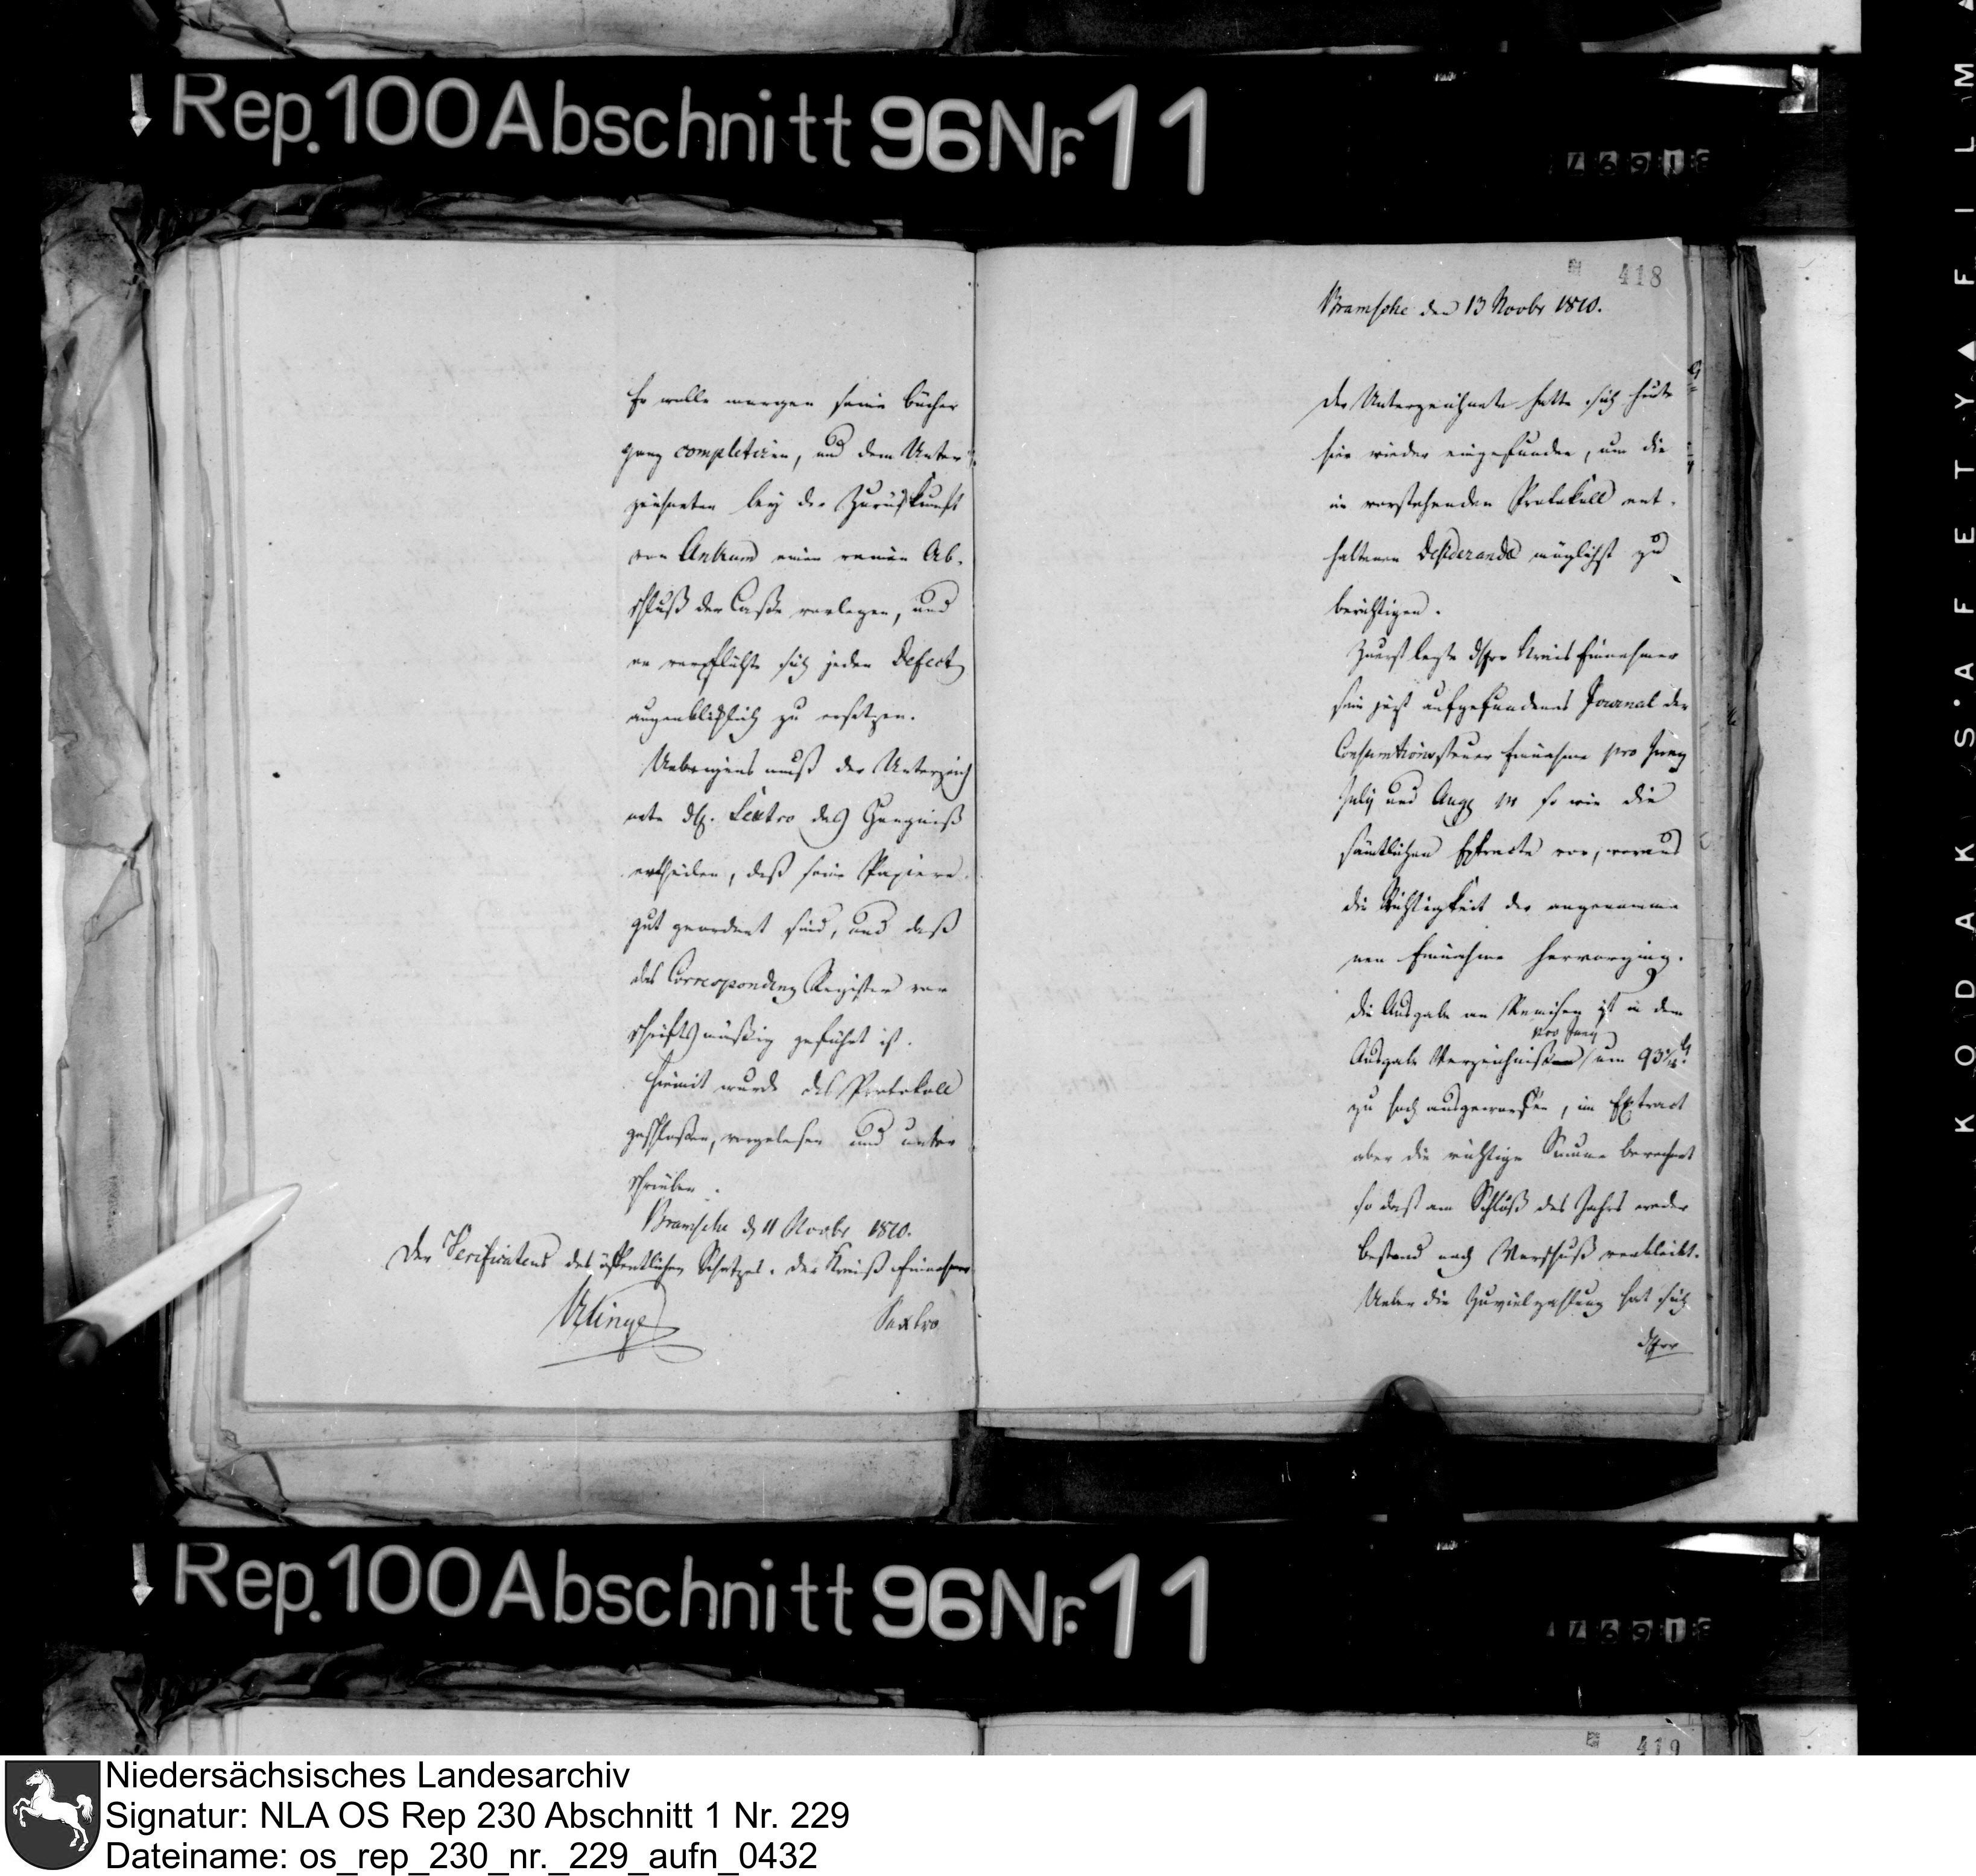 Rep. 100 Abschnitt 96 Nr. 11
Er wolle morgen seine Bücher
ganz completiren, und dem Unter-
zeichneten bey der Zurückkunft
von Ankum einen reinen Ab-
schluß der Casse vorlegen, und
er verpflichte sich jeden Defect
augenblicklich zu ersetzen.
Uebrigens muß der Unterzeich
nete dH. Sextro das Zeugniß
ertheilen, daß seine Papiere
gut geordnet sind, und daß
das Correspondenz Register vor
schriftsmäßig geführt ist.
Hiemit wurde das Protokoll
geschlossen, vorgelesen und unter
schrieben.
Bramsche d 11 Novbr 1810.
Der Verificateur des öffentlichen Schatzes. der Kreis Einnehmer
Sextro
418
Bramsche den 13 Novbr 1810.
Der Unterzeichnete hatte sich heute
hier wieder eingefunden, um die
in vorstehenden Protokoll ent-
haltenen Desideranda möglichst zu
berichtigen.
Zuerst legte dHerr Kreis Einnehmer
sein jetzt aufgefundenes Journal der
Consumtionssteuer Einnahme pro Juny
July und Aug so wie die
sämtlichen Extracte vor, woraus
die Richtigkeit der angenomme
nen Einnahme hervorging.
Die Ausgabe an Remisen ist in dem
pro Juny
Ausgabe Verzeichniß um
zu hoch ausgeworfen, im Extract
aber die richtige Summe berechnet
so daß am Schluß des Jahrs weder
Bestand noch Vorschuß verbleibt.
Ueber die Zuvielzahlung hat sich
dHerr
Rep. 100 Abschnitt 96 Nr. 11
419
KODAK SAFETY FILM
Niedersächsisches Landesarchiv
Signatur: NLA OS Rep 230 Abschnitt 1 Nr. 229
Dateiname: os_rep_230_nr._229_aufn_0432